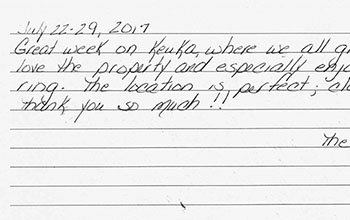 July 22-29, 2017
Great week on Keuka, where we all g
love the property and especially enjo
ring. The location is perfect; clo
thank you so much!!
The